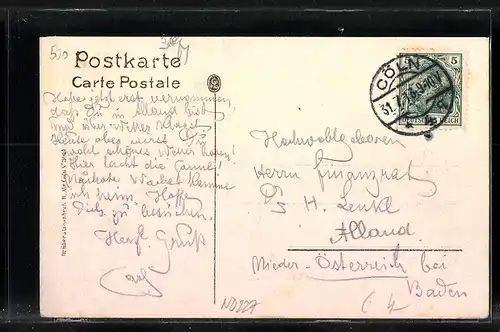 500
Postkarte
Carte Postale
Habe jetzt erst vernommen,
dass Du in Alland bist
und über Wetter klagst.
Heute aber wirst Du
wohl schönes Wetter haben!
Hier lacht die Sonne!
Nächste Woche komme
ich heim. Hoffe
Dich zu besuchen.
Herzl. Gruß
Carl
CÖLN
31.7.
5
DEUTSCHES REICH
Hochwohlgeboren
Herrn Finanzrat
H.
Alland
Nieder-Österreich bei
Baden
ND227